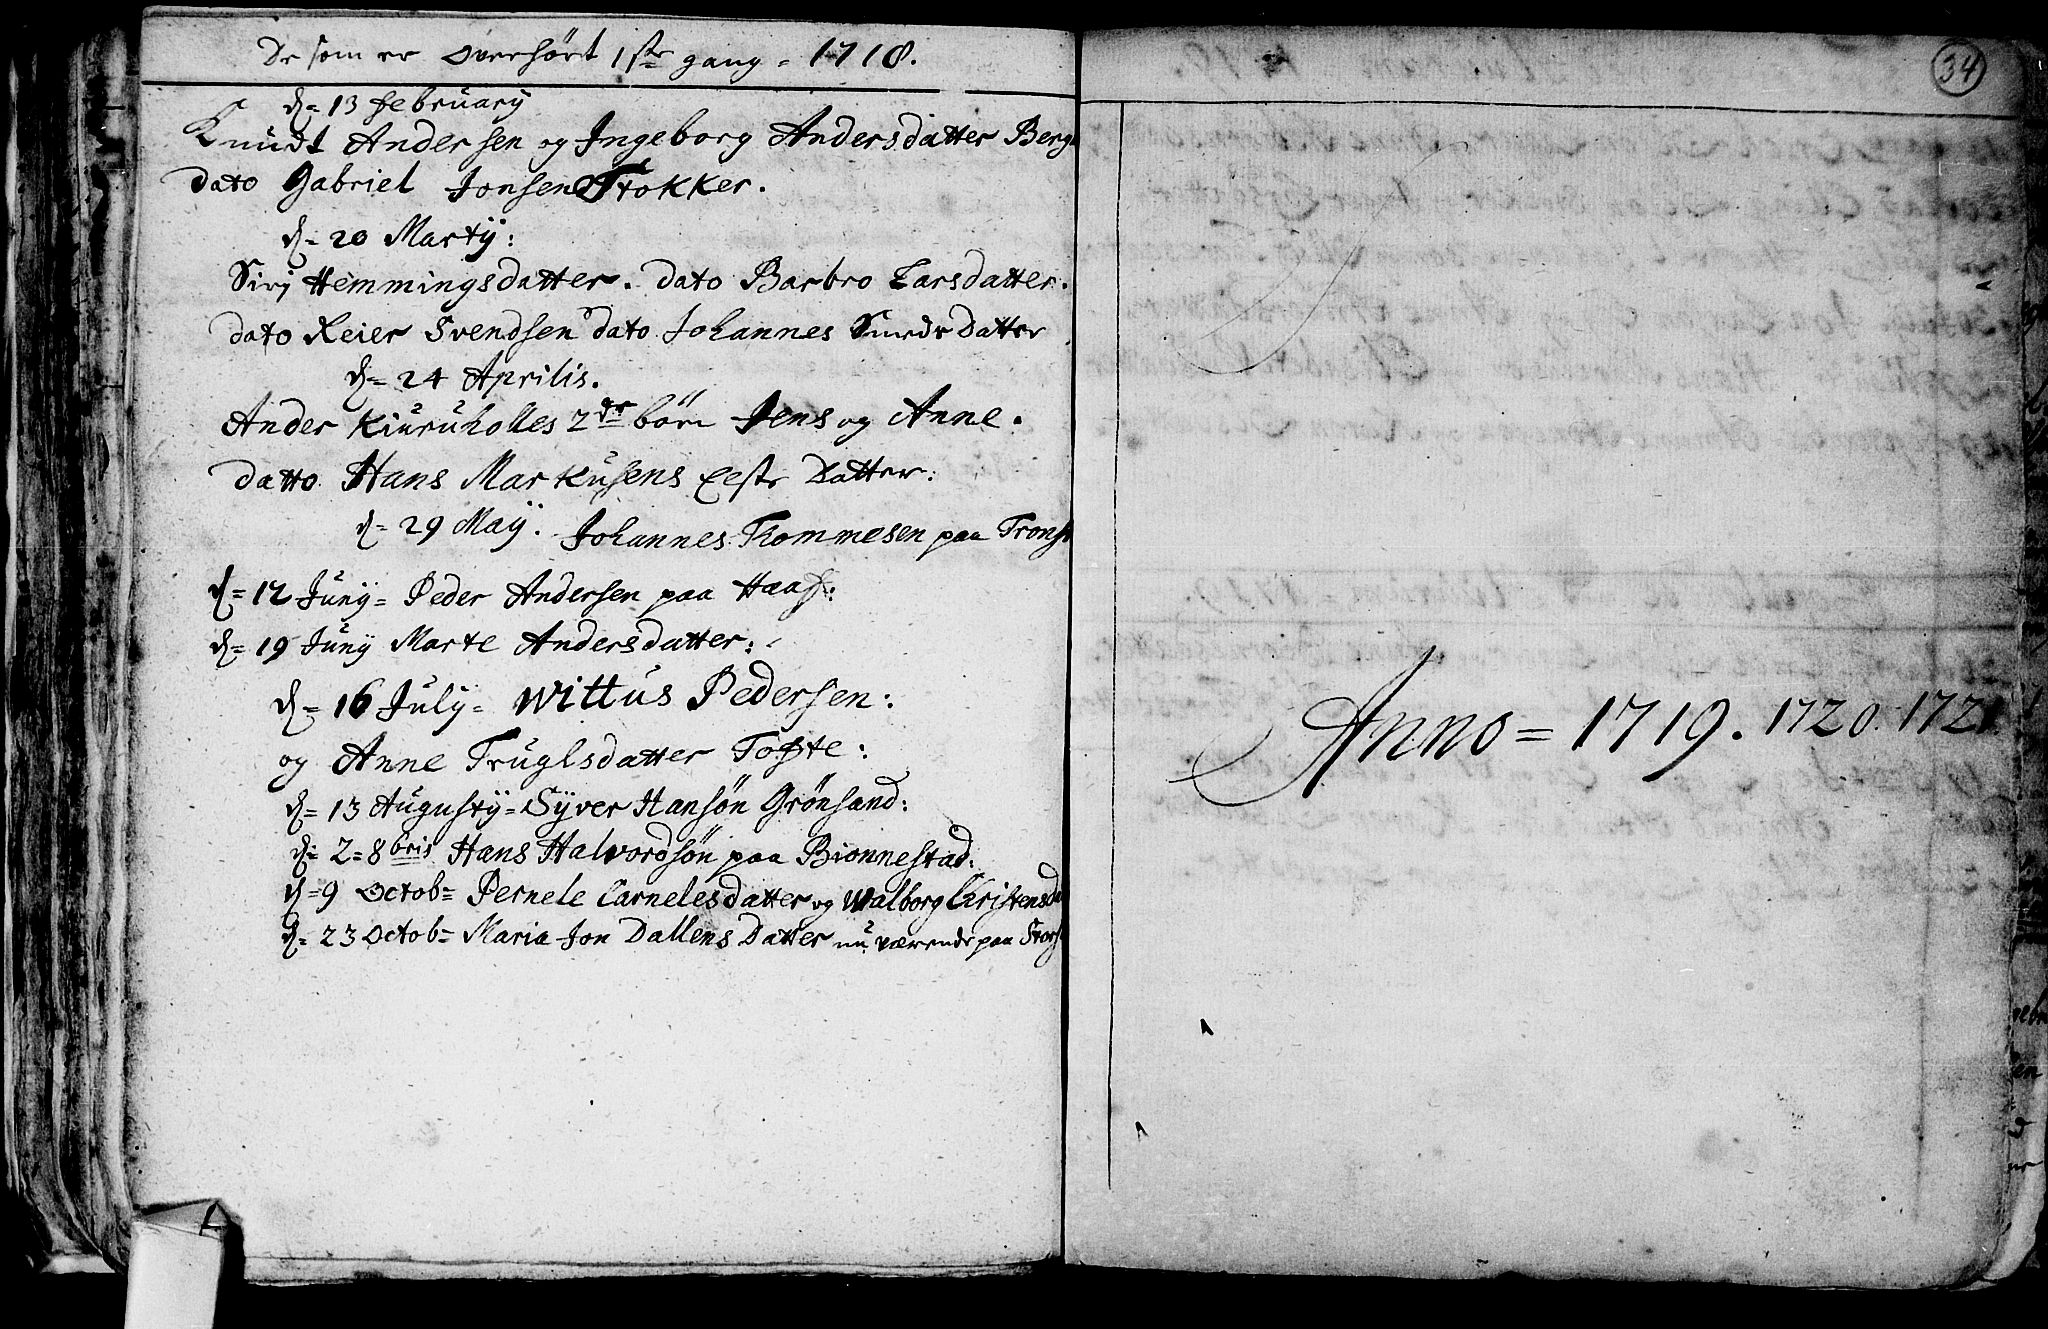 De som er overhört 1ste gang = 1718.
d= 13 february
Knudt Andersen og Ingeborg Andersdatter Berg
dato Gabriel Jonsen Stokker.
d= 20 Marty:
Siri Hemmingsdatter. dato Barbro Larsdatter.
dato Reier Svendsen dato Johannes Smeds datter
d= 24 Aprilis.
Ander Kiuruholles 2de börn Jens og Anne.
datto Hans Markusens datter:
d= 29 Maÿ. Johannes Thommesen paa Trons
d= 12 Juny = Peder Andersen paa
d= 19 Junÿ Marte Andersdatter:
d= 16 July = Wittus Pedersen:
og Anne Truglsdatter Tofte:
d= 13 Augustÿ = Syver Hansön Grönsand:
d= 2= 8bris Hans Halvordsön paa Bionnestad:
d= 9 Octob= Pernele Carnelesdatter og Walborg Christensd
d= 23 Octob= Maria Jon Dallens Datter nu værende paa Stors
34
Anno = 1719. 1720. 1721